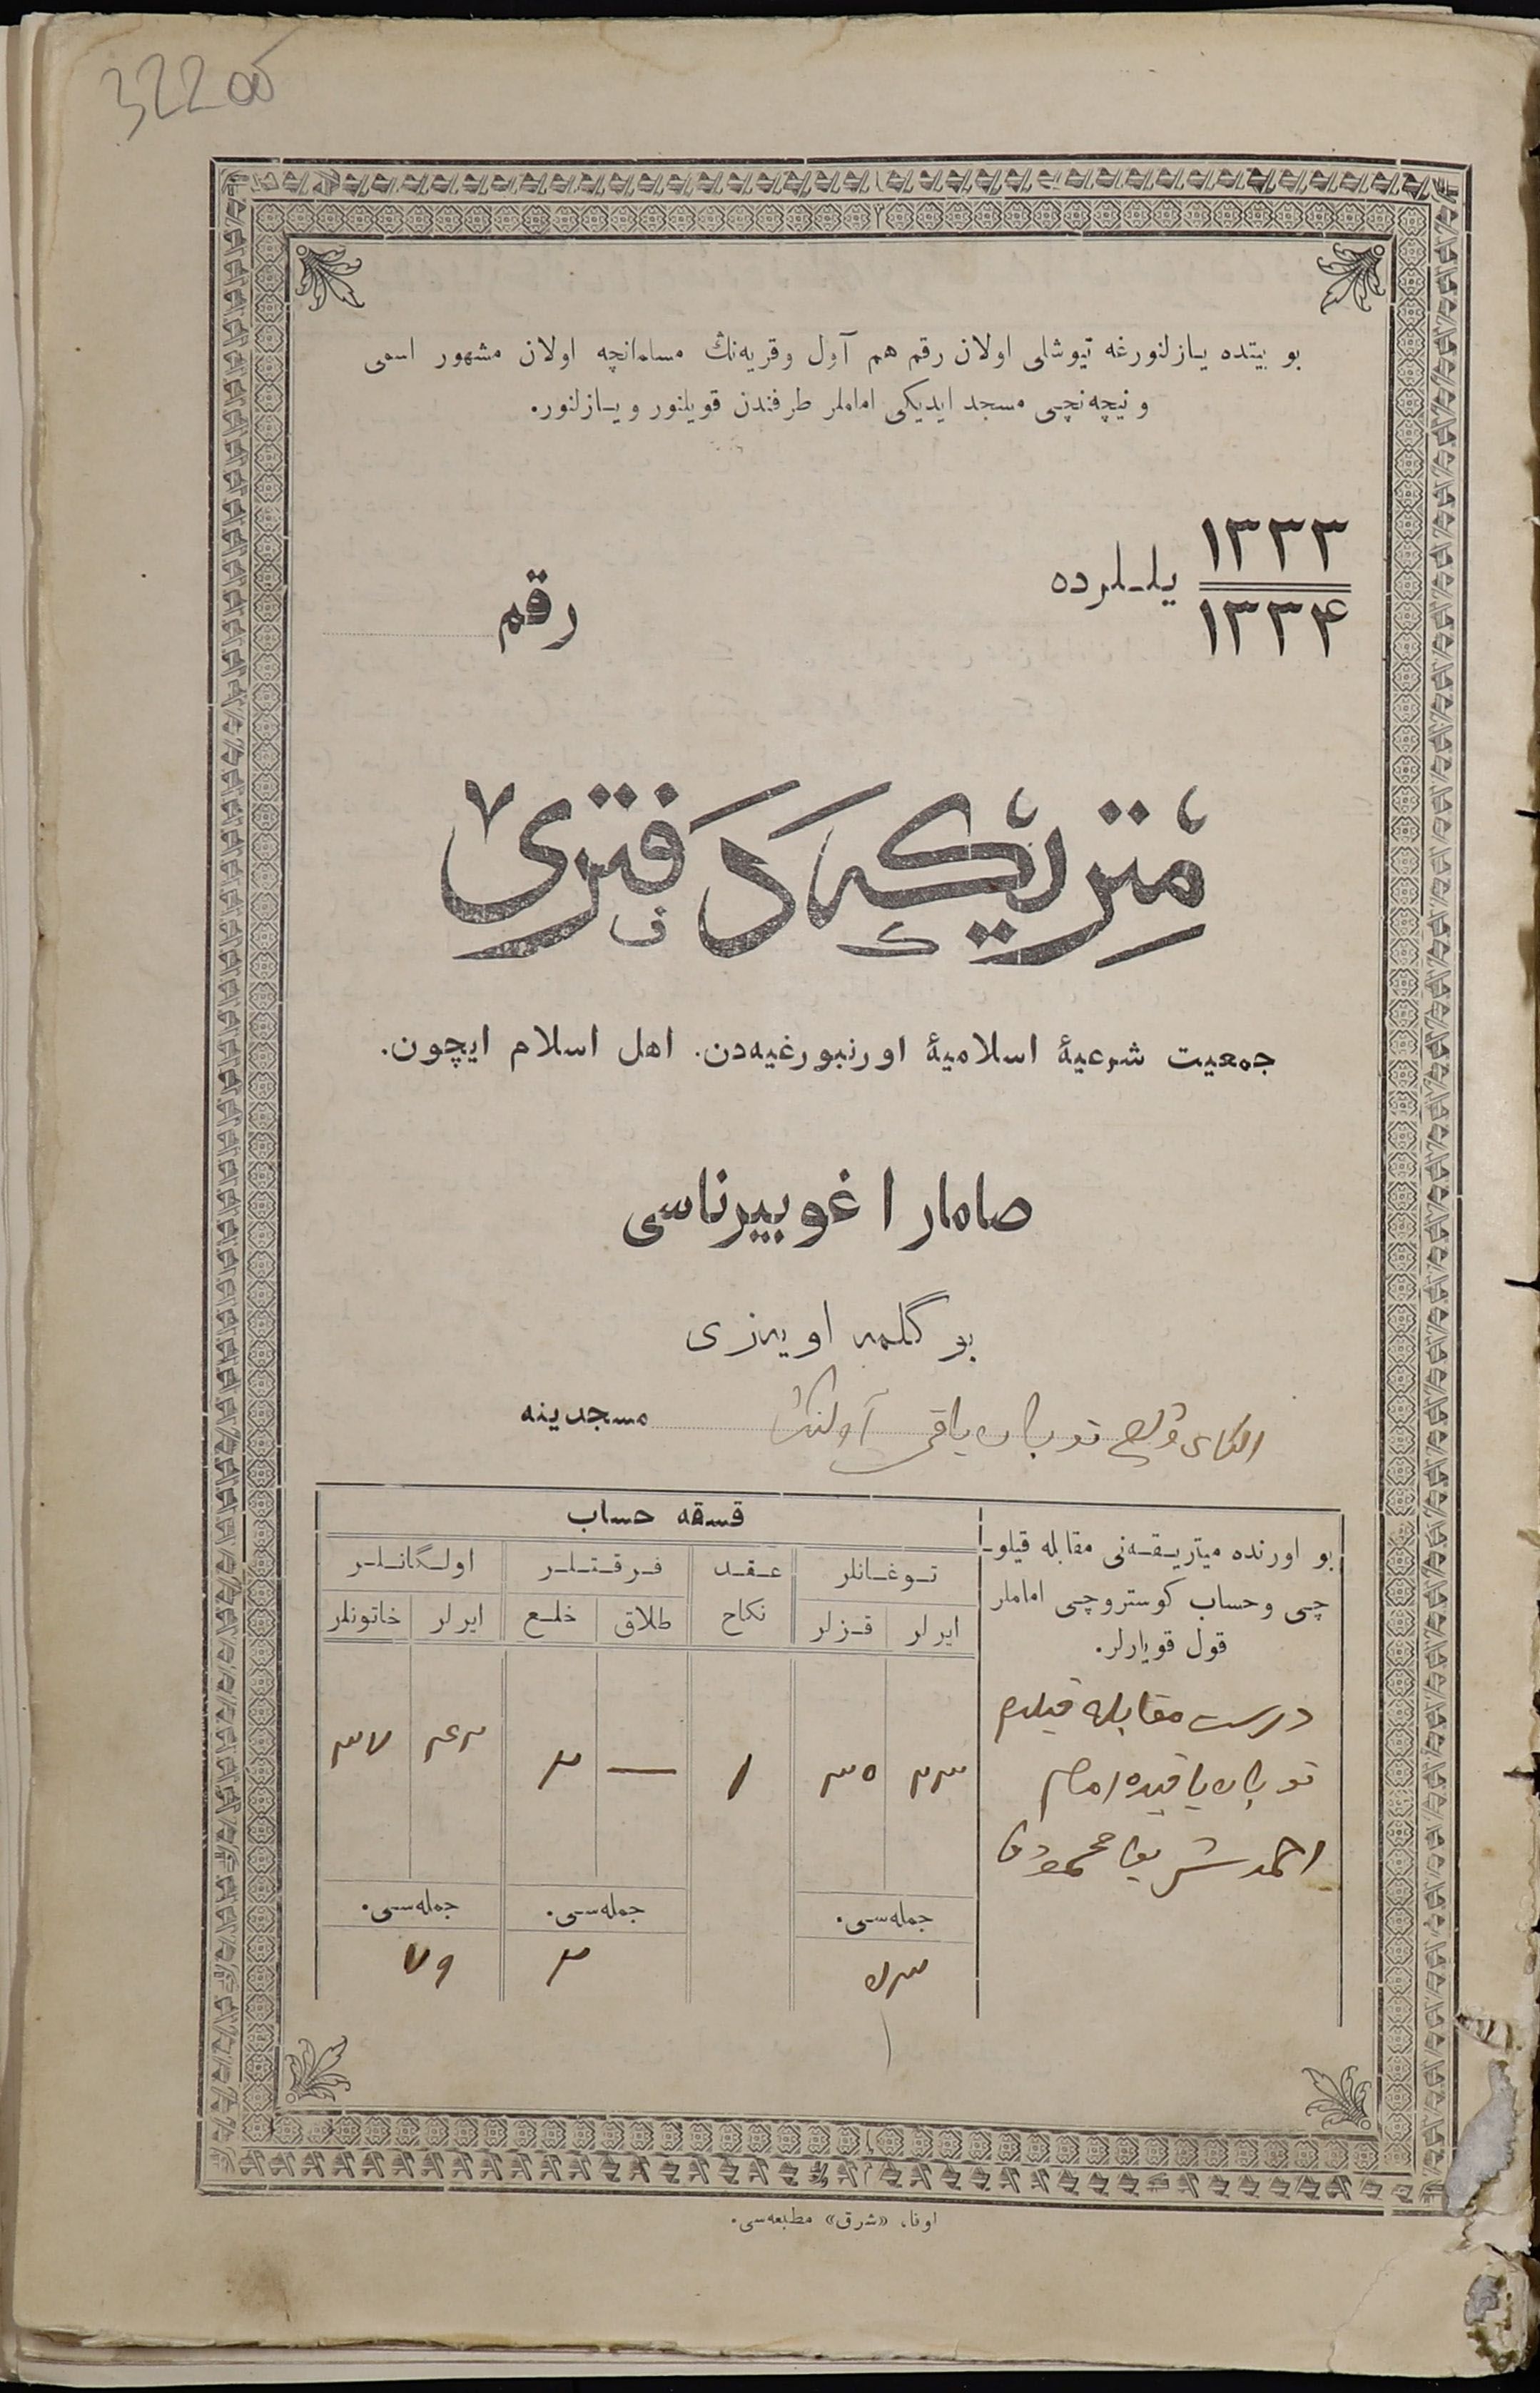 32200
بو بیتده یازلنورغه تیوشلی اولان رقم هم آول وقریه‌نڭ مسلمانچه اولان مشهور اسمی
و نیچه‌نچی مسجد ایدیکی اماملر طرفندن قویلنور و یازلنور.
۱۳۳۳
۱۳۳۴
یللرده
رقم
متریکه دفتری
جمعیت شرعیهٔ اسلامیهٔ اورنبورغیه‌دن. اهل اسلام ایچون.
صامارا غوبیرناسی
بوگلمه اویه‌زی
مسجدینه
بو اورنده میتریقه‌نی مقابله قیلو-
چی وحساب کوستروچی اماملر
قول قویارلر.
درست مقابله قیلدم
امام
احمد شریف محمودف
قسقه حساب
توغانلر
عقد نکاح
فرقتلر
اولگانلر
ایرلر
قزلر
طلاق
خلع
ایرلر
خاتونلر
۲۳
۳۵
۱
—
۲
۴۲
۳۷
جمله‌سی.
جمله‌سی.
جمله‌سی.
۲
۷۹
اوفا، «شرق» مطبعه‌سی.